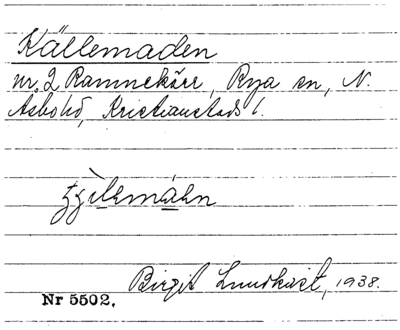 Källemaden
nr. 2 Ramnekärr, Rya sn, N.
Åsbo hd, Kristianstads l.
Birgit Lundkvist, 1938.
Nr 5502.